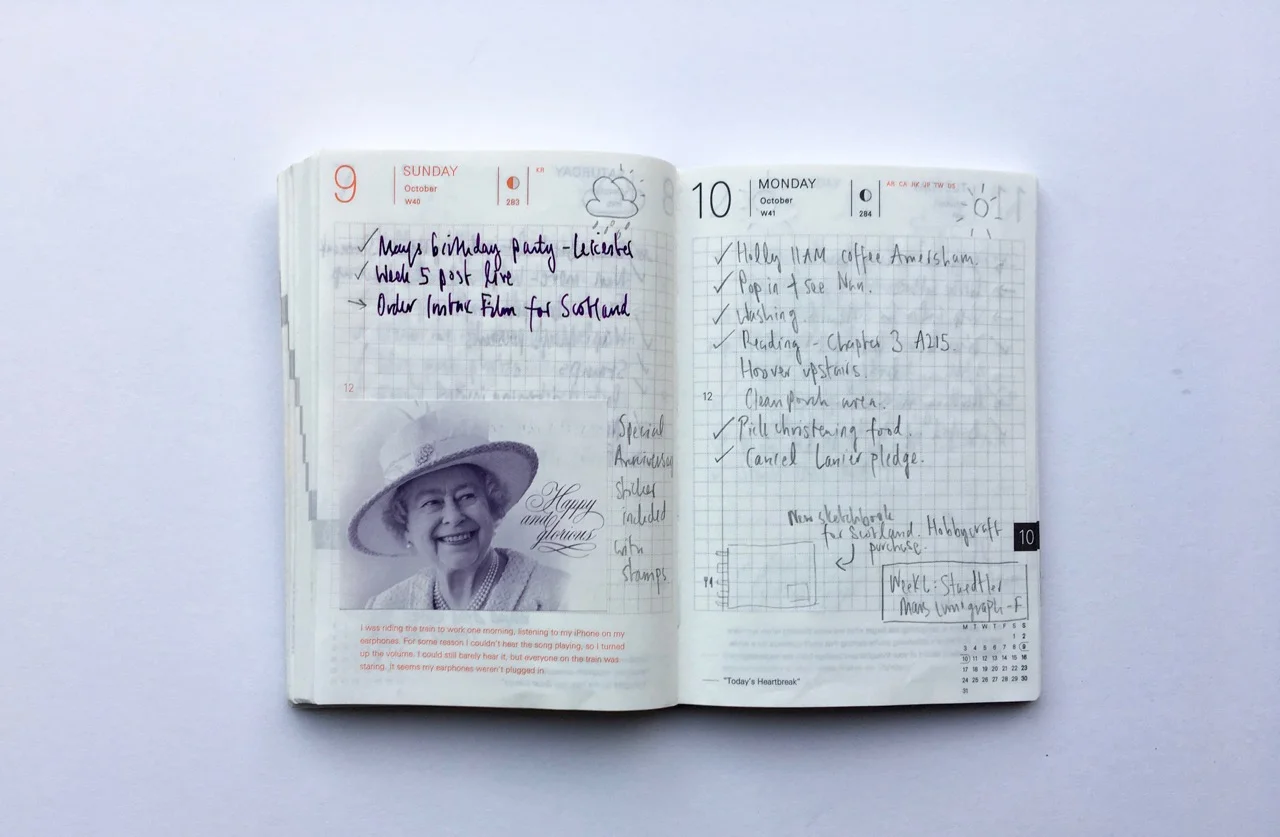 9
SUNDAY
October
W40
283
KR
✓ Mays birthday party - Leicester
✓ Week 5 post live
→ Order Instax Film for Scotland
12
Happy
and
glorious
Special
Anniversary
sticker
included
with
stamps.
I was riding the train to work one morning, listening to my iPhone on my
earphones. For some reason I couldn't hear the song playing, so I turned
up the volume. I could still barely hear it, but everyone on the train was
staring. It seems my earphones weren't plugged in.
10
MONDAY
October
W41
284
AR CA HK JP TW US
✓ Holly 11AM coffee Amersham.
✓ Pop in & see Nan.
✓ Washing.
✓ Reading - Chapter 3 A215.
Hoover upstairs.
12
Clean porch area.
✓ Pick christening food.
✓ Cancel Lanier pledge.
New sketchbook
for Scotland. Hobbycraft
purchase.
10
Week 6: Staedtler
Mars Lumograph - F
M T W T F S S
1 2
3 4 5 6 7 8 9
10 11 12 13 14 15 16
17 18 19 20 21 22 23
24 25 26 27 28 29 30
31
"Today's Heartbreak"